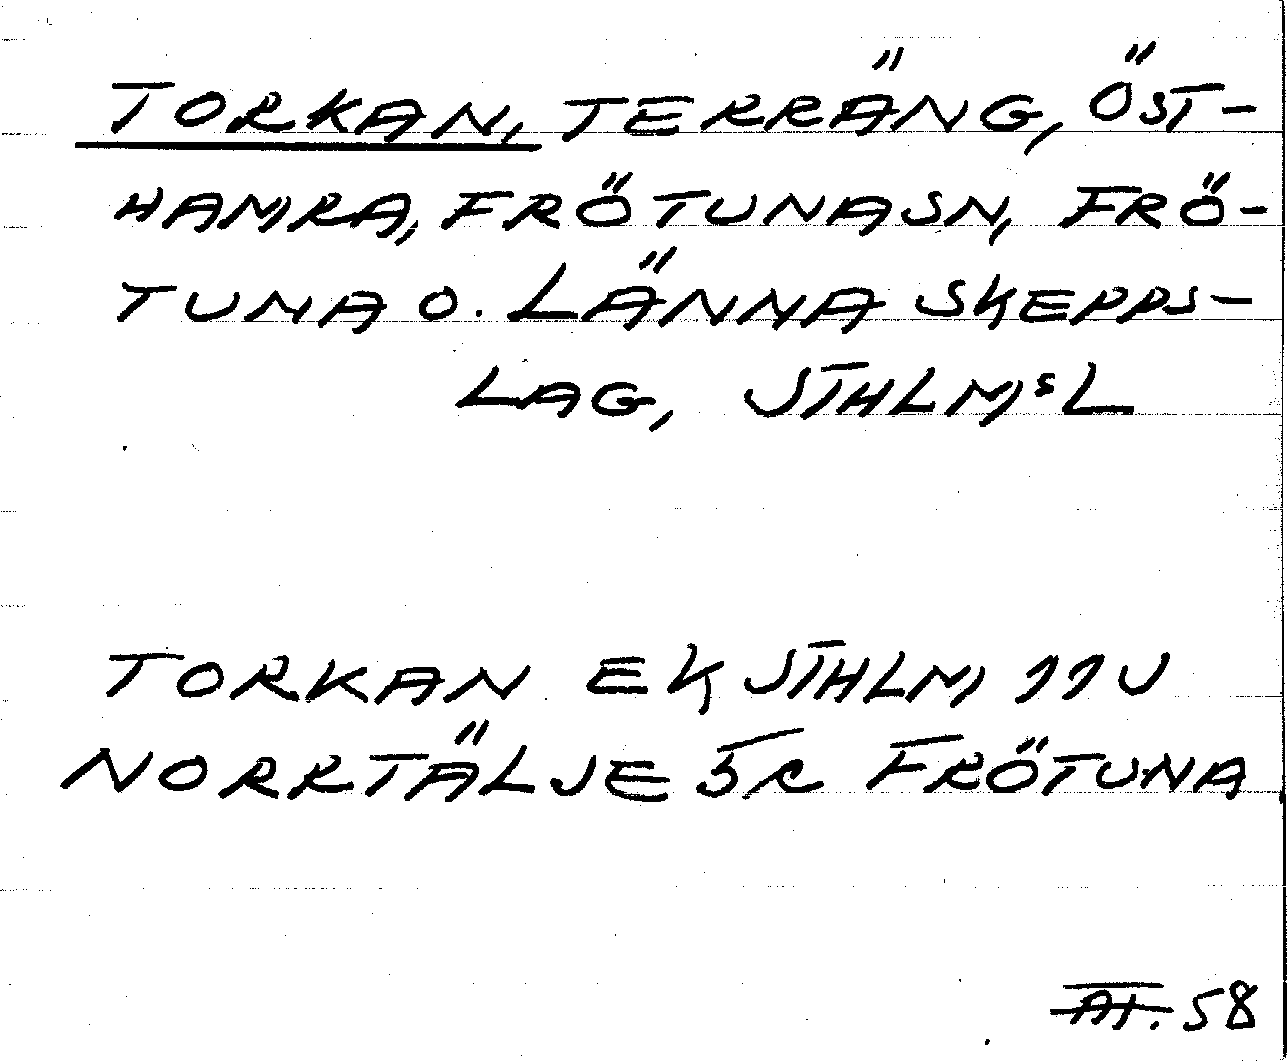 TORKAN, TERRÄNG, ÖST-
HAMRA, FRÖTUNASN, FRÖ-
TUNA O. LÄNNA SKEPPS-
LAG, STHLMSL
TORKAN EK STHLM 11U
NORRTÄLJE 5c FRÖTUNA
58